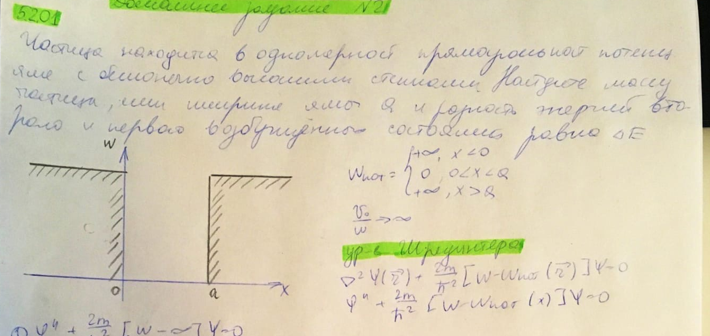 Домашнее задание №2
5.201
Частица находится в одномерной прямоугольной потенц
яме с бесконечно высокими стенками Найдите массу
частицы, если ширина ямы a и разность энергий вто-
рого и первого возбуждённых состояний равна ΔE
W
+∞, x<0
Wпот = { 0, 0<x<a
+∞, x>a
→∞
0 a x
ур-е Шредингера
∇²Ψ(r⃗) + 2m/ħ² [W-Wпот(r⃗)]Ψ=0
Ψ" + 2m/ħ² [W-Wпот(x)]Ψ=0
Ψ" + 2m/ħ² [W-∞]Ψ=0